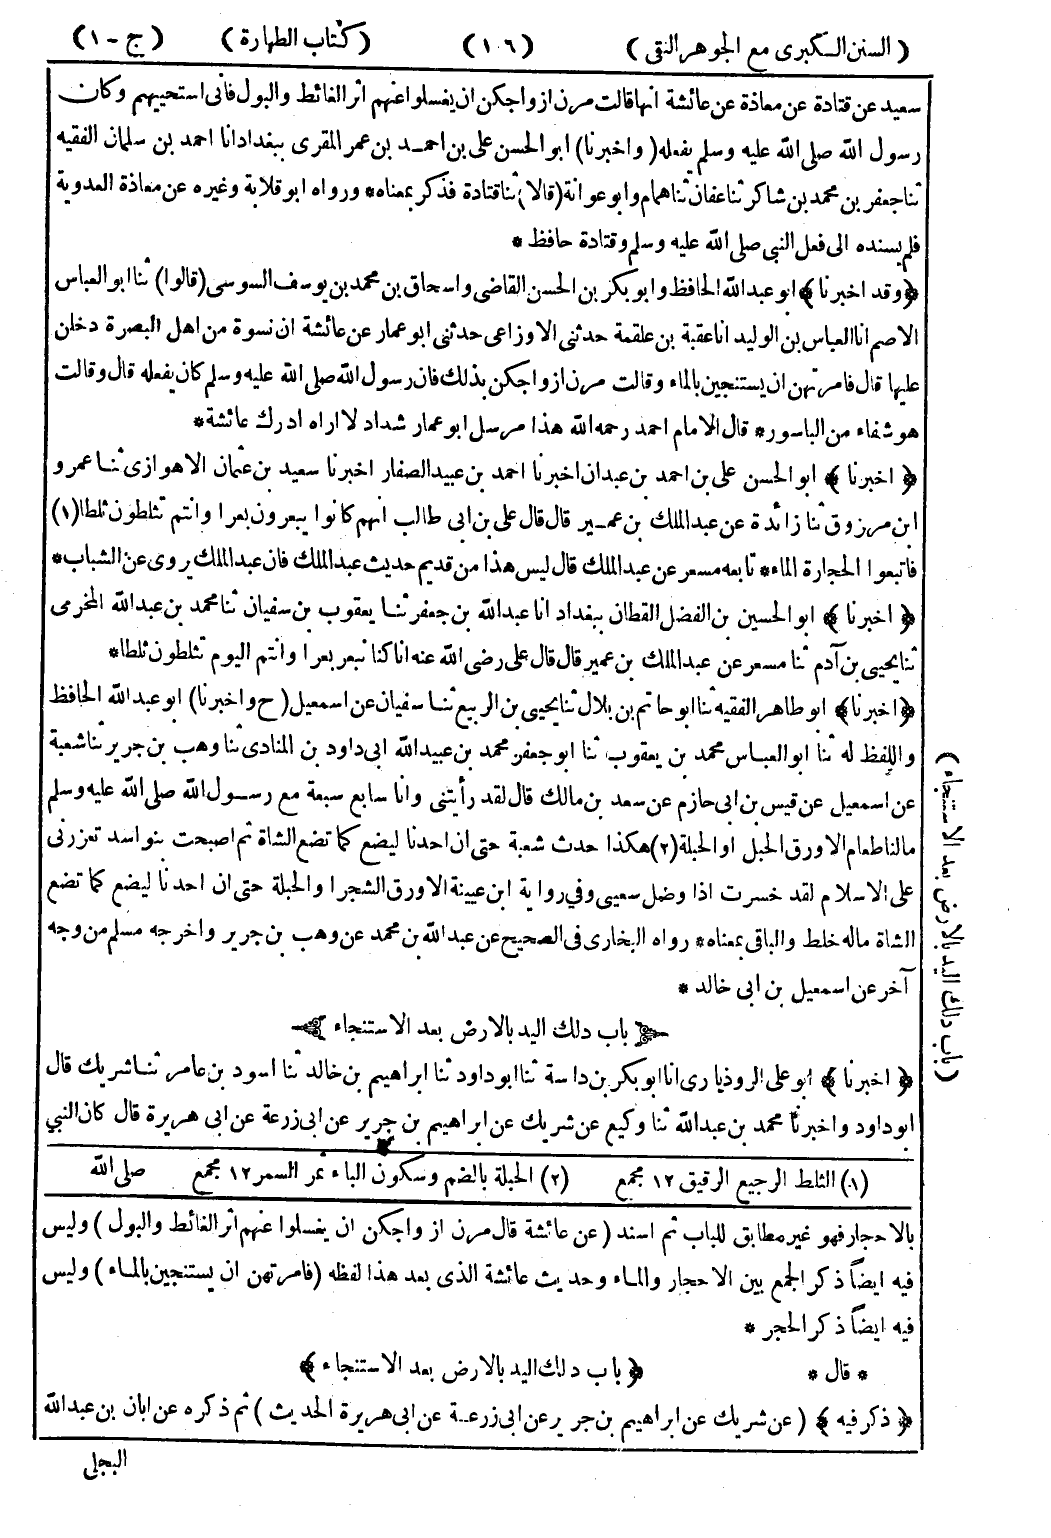 ( السنن الكبرى مع الجوهر النقى )    (١٠٦)    ( كتاب الطهارة )    ( ج - ١ )
سعيد عن قتادة عن معاذة عن عائشة انها قالت مرن ازواجكن ان يغسلوا عنهم اثر الغائط والبول فانى استحييهم وكان
رسول الله صلى الله عليه وسلم يفعله (واخبرنا) ابو الحسن على بن احمد بن عمر المقرى ببغداد انا احمد بن سلمان الفقيه
ثنا جعفر بن محمد بن شاكر ثنا عفان ثنا همام وابو عوانة (قالا) ثنا قتادة فذكر بمعناه* ورواه ابو قلابة وغيره عن معاذة العدوية
فلم يسنده الى فعل النبى صلى الله عليه وسلم وقتادة حافظ *
﴿وقد اخبرنا﴾ ابو عبد الله الحافظ وابو بكر بن الحسن القاضى واسحاق بن محمد بن يوسف السوسى (قالوا) ثنا ابو العباس
الاصم انا العباس بن الوليد انا عقبة بن علقمة حدثنى الاوزاعى حدثنى ابو عمار عن عائشة ان نسوة من اهل البصرة دخلن
عليها قال فامرتهن ان يستنجين بالماء وقالت مرن ازواجكن بذلك فان رسول الله صلى الله عليه وسلم كان يفعله قال وقالت
هو شفاء من الباسور* قال الامام احمد رحمه الله هذا مرسل ابو عمار شداد لا اراه ادرك عائشة*
﴿ اخبرنا ﴾ ابو الحسن على بن احمد بن عبدان اخبرنا احمد بن عبيد الصفار اخبرنا سعيد بن عثمان الاهوازى ثنا عمرو
ابن مرزوق ثنا زائدة عن عبد الملك بن عمير قال قال على بن ابى طالب انهم كانوا يبعرون بعرا وانتم تثلطون ثلطا (١)
فاتبعوا الحجارة الماء* تابعه مسعر عن عبد الملك قال ليس هذا من قديم حديث عبد الملك فان عبد الملك يروى عن الشباب*
﴿ اخبرنا ﴾ ابو الحسين بن الفضل القطان ببغداد انا عبد الله بن جعفر ثنا يعقوب بن سفيان ثنا محمد بن عبد الله المخرمى
ثنا يحيى بن آدم ثنا مسعر عن عبد الملك بن عمير قال قال على رضى الله عنه انا كنا نبعر بعرا وانتم اليوم تثلطون ثلطا*
﴿اخبرنا﴾ ابو طاهر الفقيه ثنا ابو حاتم بن بلال ثنا يحيى بن الربيع ثنا سفيان عن اسمعيل (ح واخبرنا) ابو عبد الله الحافظ
واللفظ له ثنا ابو العباس محمد بن يعقوب ثنا ابو جعفر محمد بن عبيد الله ابى داود بن المنادى ثنا وهب بن جرير ثنا شعبة
عن اسمعيل عن قيس بن ابى حازم عن سعد بن مالك قال لقد رأيتنى وانا سابع سبعة مع رسول الله صلى الله عليه وسلم
مالنا طعام الا ورق الحبل او الحبلة (٢) هكذا حدث شعبة حتى ان احدنا ليضع كما تضع الشاة ثم اصبحت بنو اسد تعزرنى
على الاسلام لقد خسرت اذا وضل سعيى وفى رواية ابن عيينة الا ورق الشجر او الحبلة حتى ان احدنا ليضع كما تضع
الشاة ماله خلط والباقى بمعناه* رواه البخارى فى الصحيح عن عبد الله بن محمد عن وهب بن جرير واخرجه مسلم من وجه
آخر عن اسمعيل بن ابى خالد *
باب دلك اليد بالارض بعد الاستنجاء
﴿ اخبرنا ﴾ ابو على الروذبارى انا ابو بكر بن داسة ثنا ابو داود ثنا ابراهيم بن خالد ثنا اسود بن عامر ثنا شريك قال
ابو داود واخبرنا محمد بن عبد الله ثنا وكيع عن شريك عن ابراهيم بن جرير عن ابى زرعة عن ابى هريرة قال كان النبي
( باب دلك اليد بالارض بعد الاستنجاء )
(١) الثلط الرجيع الرقيق ١٢ مجمع    (٢) الحبلة بالضم وسكون الباء ثمر السمر ١٢ مجمع    صلى الله
بالاحجار فهو غير مطابق للباب ثم اسند ( عن عائشة قال مرن ازواجكن ان يغسلوا عنهم اثر الغائط والبول ) وليس
فيه ايضاً ذكر الجمع بين الاحجار والماء وحديث عائشة الذى بعد هذا لفظه (فامرتهن ان يستنجين بالماء ) وليس
فيه ايضاً ذكر الحجر *
* قال *    ﴿ باب دلك اليد بالارض بعد الاستنجاء ﴾
﴿ ذكر فيه ﴾ ( عن شريك عن ابراهيم بن جرير عن ابى زرعة عن ابى هريرة الحديث ) ثم ذكره عن ابان بن عبد الله
البجلى